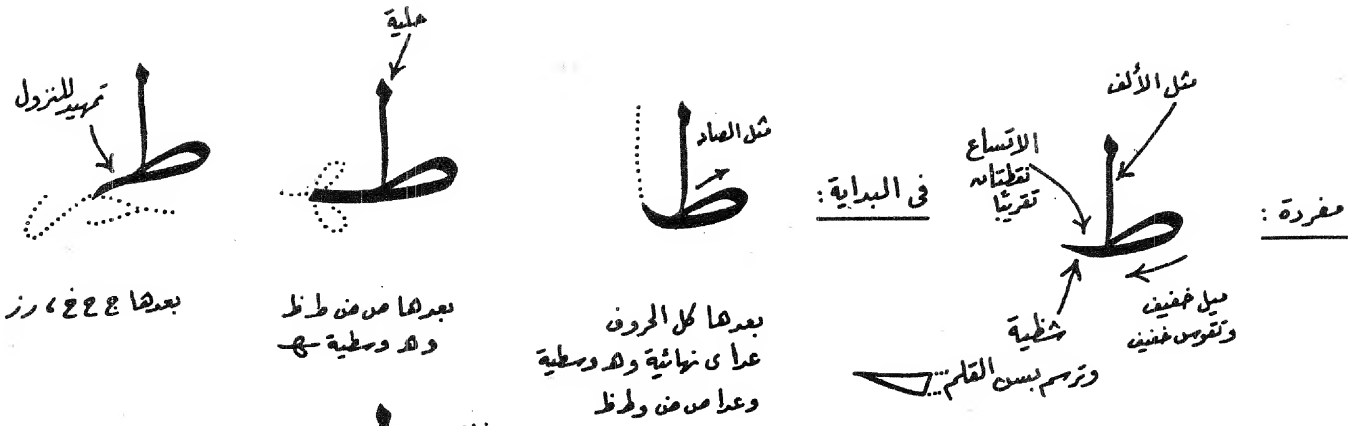 مفردة :
مثل الألف
الاتساع
نقطتان
تقريبًا
ط
ميل خفيف
وتقوس خفيف
شظية
وترسم بسن القلم...
فى البداية :
مثل الصاد
ط
بعدها كل الحروف
عدا ى نهائية وهـ وسطية
وعدا ص ض وط ظ
حلية
ط
بعدها ص ض ط ظ
وهـ وسطية ـهـ
تمهيد للنزول
ط
بعدها ج ح خ ، ر ز